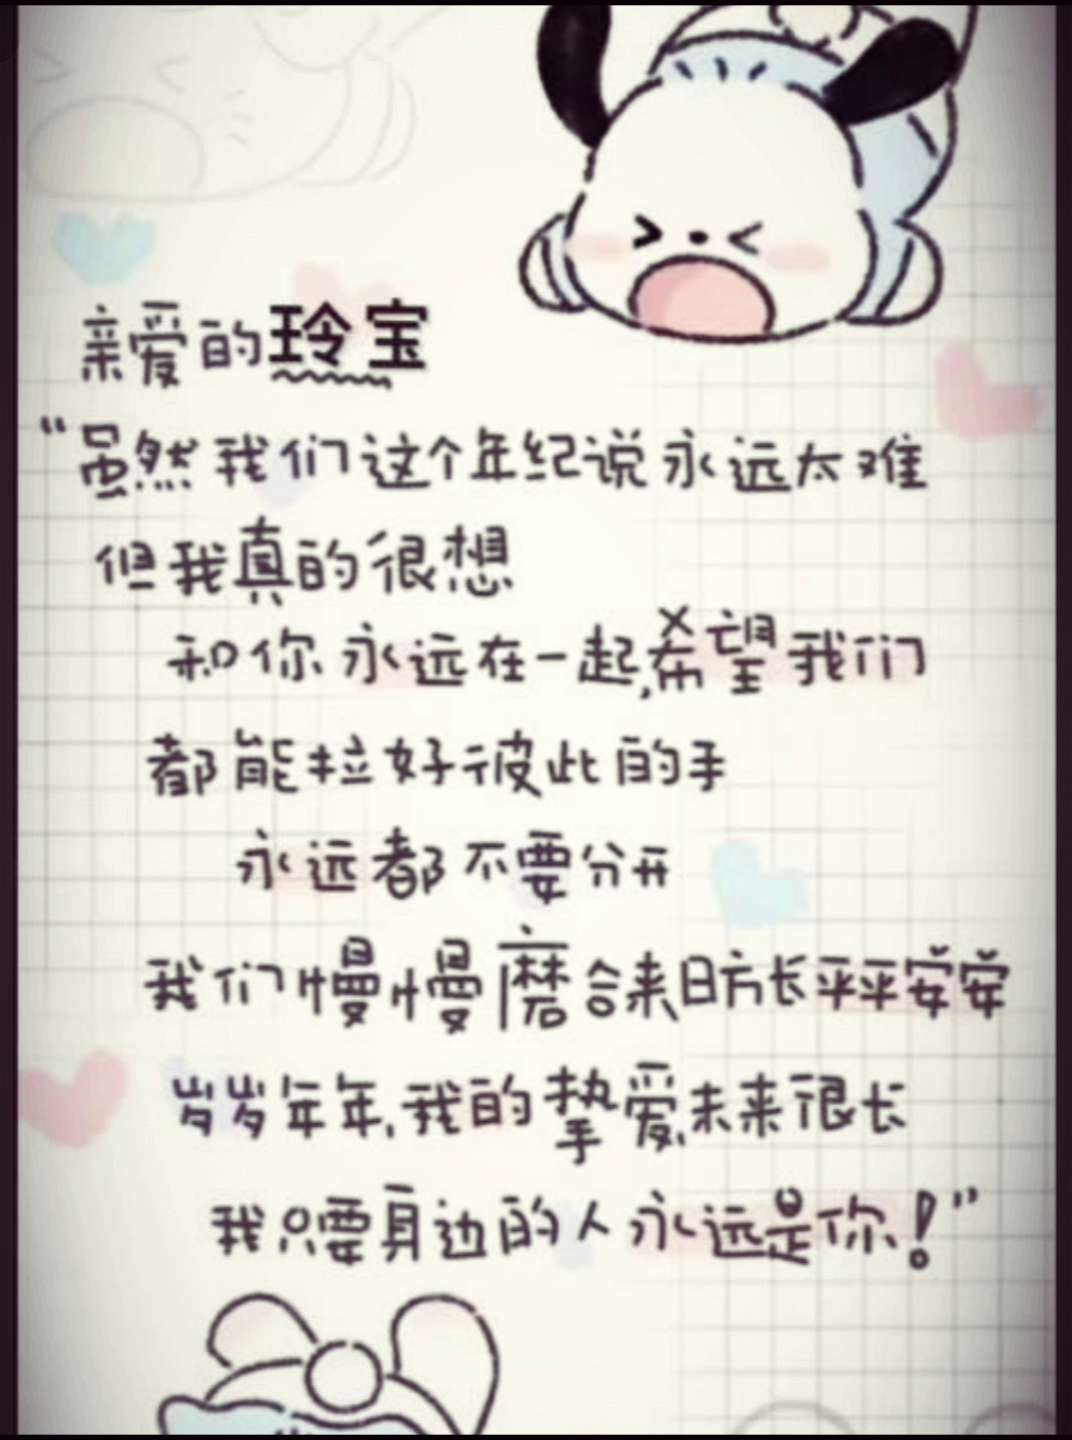 亲爱的玲宝
“虽然我们这个年纪说永远太难
但我真的很想
和你永远在一起,希望我们
都能拉好彼此的手
永远都不要分开
我们慢慢磨合来日方长平平安安
岁岁年年,我的挚爱,未来很长
我只要身边的人永远是你!”